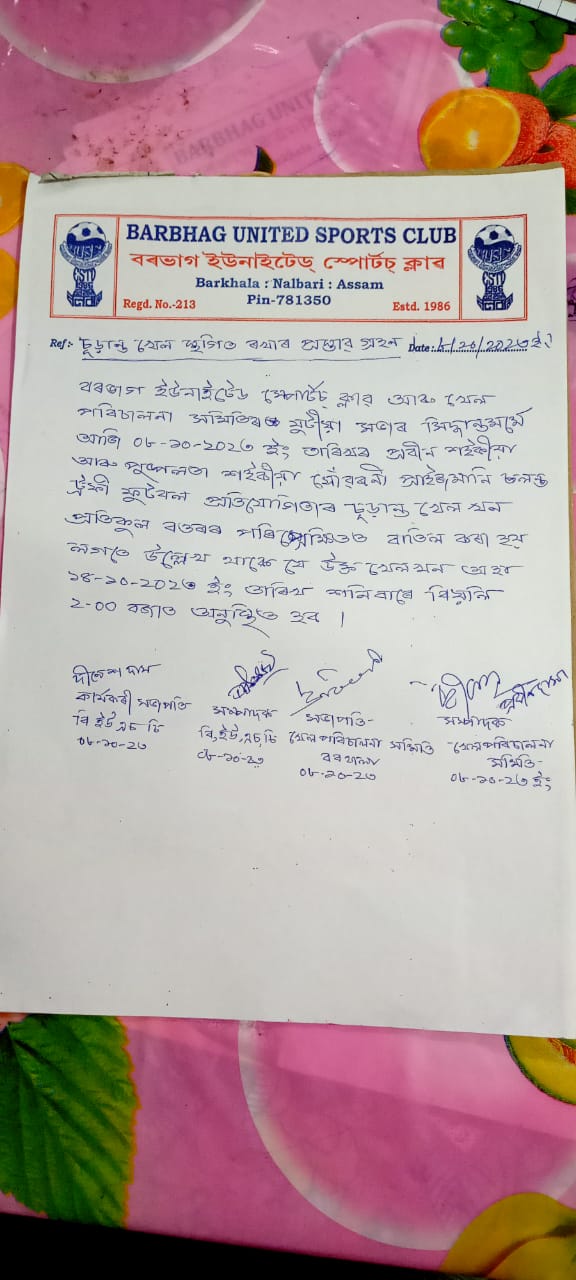 BARBHAG UNITED SPORTS CLUB
বৰভাগ ইউনাইটেড্ স্পোৰ্টচ্ ক্লাৱ
Barkhala : Nalbari : Assam
Regd. No.-213 Pin-781350 Estd. 1986
Ref:- চূড়ান্ত খেল স্থগিত ৰখাৰ প্ৰস্তাৱ গ্ৰহন Date: ৮/১০/২০২৩ ইং
বৰভাগ ইউনাইটেড স্পোৰ্টচ্ ক্লাৱ আৰু খেল
পৰিচালনা সমিতিৰ যুটীয়া সভাৰ সিদ্ধান্তমৰ্মে
আজি ০৮-১০-২০২৩ ইং তাৰিখৰ প্ৰবীন শইকীয়া
আৰু পুষ্পলতা শইকীয়া সোঁৱৰনী প্ৰাইজমানি চলন্ত
ট্ৰফী ফুটবল প্ৰতিযোগিতাৰ চূড়ান্ত খেল খন
প্ৰতিকুল বতৰৰ পৰিপ্ৰেক্ষিতত বাতিল কৰা হয়
লগতে উল্লেখ থাকে যে উক্ত খেল খন অহা
১৪-১০-২০২৩ ইং তাৰিখ শনিবাৰে বিয়লি
২-০০ বজাত অনুষ্ঠিত হব ।
দীনেশ দাস
কাৰ্যকৰী সভাপতি
বি ইউ এচ চি
০৮-১০-২৩
সম্পাদক
বি, ইউ, এচ, চি
০৮-১০-২৩
সভাপতি-
খেল পৰিচালনা সমিতি
বৰখালা
০৮-১০-২৩
সম্পাদক
খেল পৰিচালনা
সমিতি-
০৮-১০-২৩ ইং